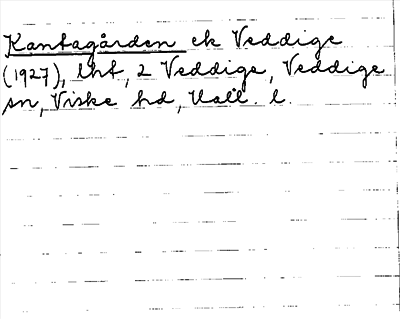 Kantagården ek Veddige
(1927), lht, 2 Veddige, Veddige
sn, Viske hd, Hall. l.